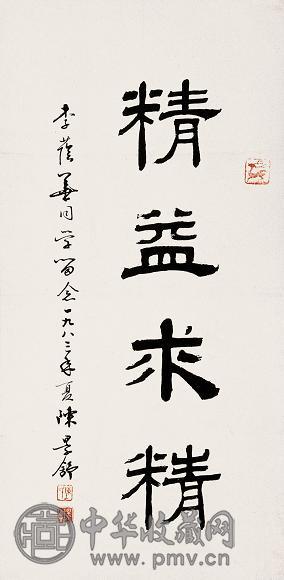 精益求精
李荫华同学留念一九八三年夏陈景舒
中华收藏网
www.pmv.cn